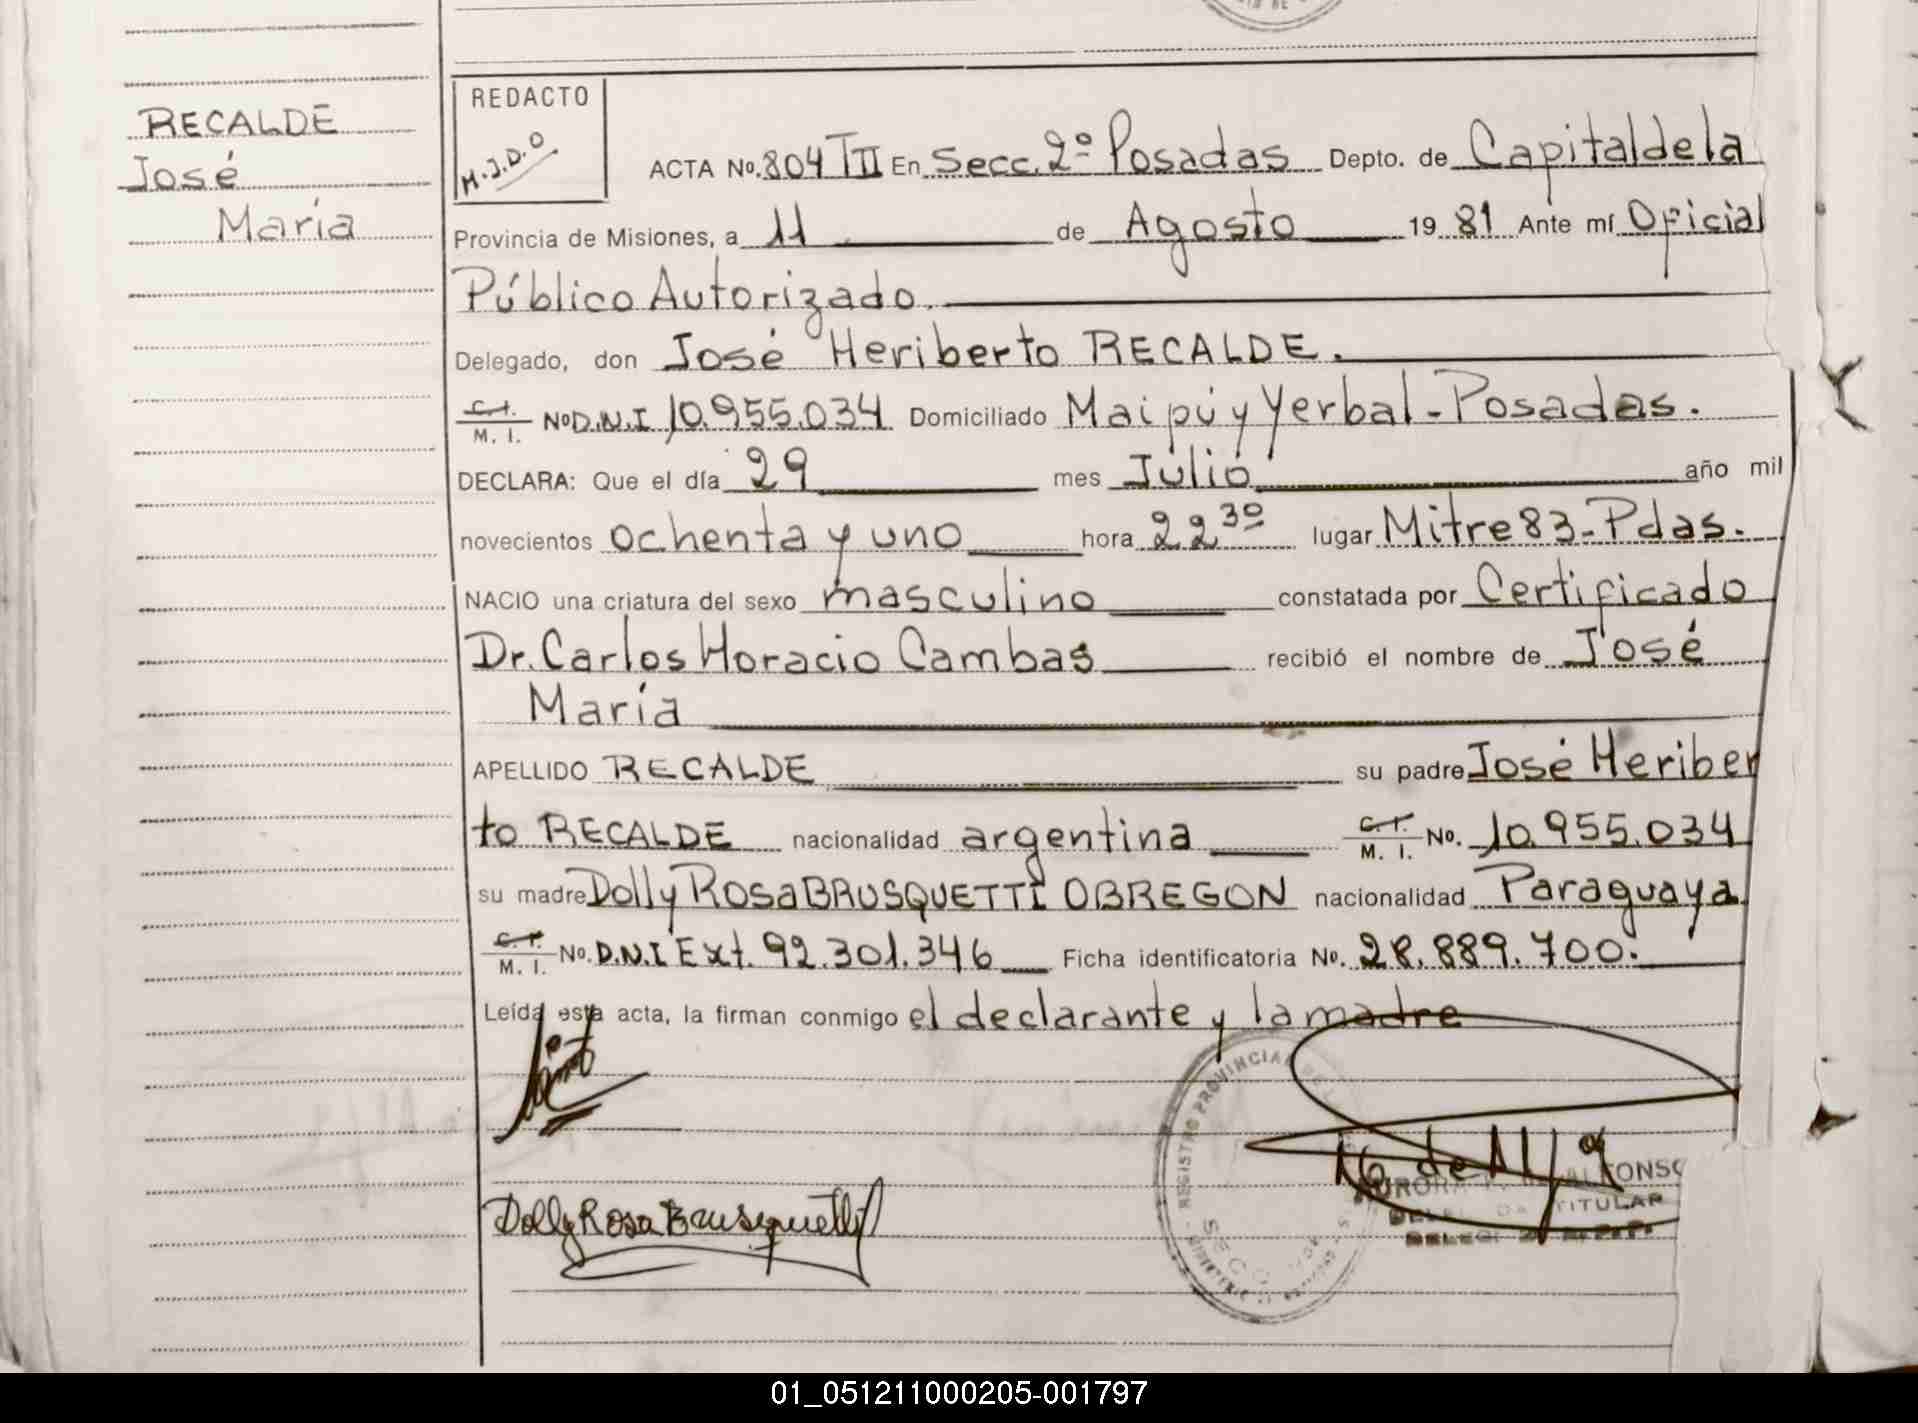 RECALDE
José
María
REDACTO
M.J.D.O
ACTA No. 804 TII En Secc. 2º Posadas Depto. de Capital de la
Provincia de Misiones, a 11 de Agosto 1981 Ante mí Oficial
Público Autorizado.
Delegado, don José Heriberto RECALDE.
C.I. M. I. No D.N.I 10.955.034 Domiciliado Maipú y Yerbal - Posadas.
DECLARA: Que el día 29 mes Julio año mil
novecientos ochenta y uno hora 22 30 lugar Mitre 83 - Pdas.
NACIO una criatura del sexo masculino constatada por Certificado
Dr. Carlos Horacio Cambas recibió el nombre de José
María
APELLIDO RECALDE su padre José Heriber
to RECALDE nacionalidad argentina C.I. M. I. No. 10.955.034
su madre Dolly Rosa BRUSQUETTI OBREGON nacionalidad Paraguaya
C.I. M. I. No. D.N.I Ext. 92.301.346 Ficha identificatoria No. 28.889.700.
Leída esta acta, la firman conmigo el declarante y la madre
REGISTRO PROVINCIAL DE
SECC
TITULAR
Dolly Rosa Brusquetti
01_051211000205-001797